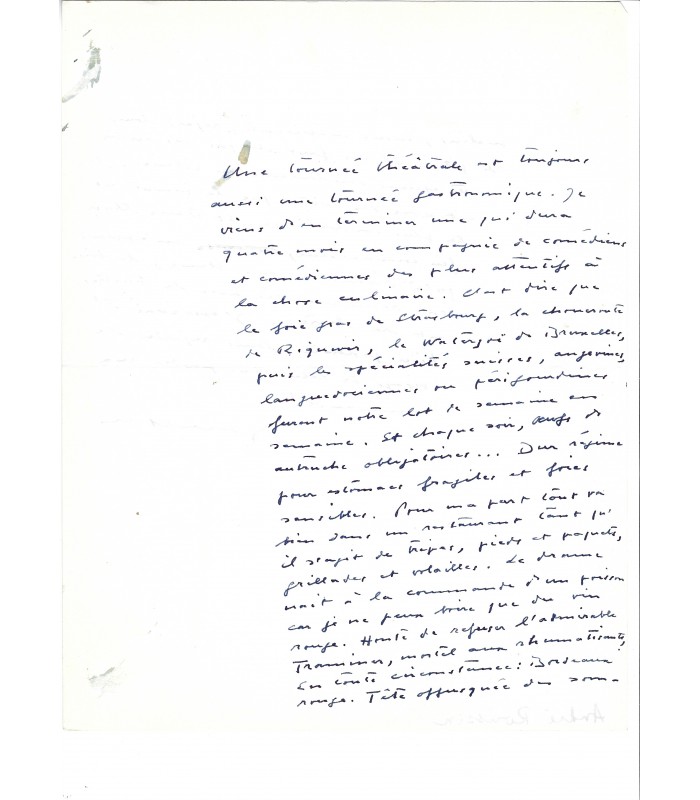 Une tournée théâtrale est toujours
aussi une tournée gastronomique. Je
viens d'en terminer une qui dura
quatre mois en compagnie de comédiens
et comédiennes des plus attentifs à
la chose culinaire. C'est dire que
le foie gras de Strasbourg, la choucroute
de Riquewir, le Waterzoï de Bruxelles,
puis les spécialités suisses, angevines,
languedociennes ou périgourdines
furent notre lot de semaine en
semaine. Et chaque soir, œufs de
autruche obligatoires... Dur régime
pour estomacs fragiles et foies
sensibles. Pour ma part tout va
bien dans un restaurant tant qu'
il s'agit de tripes, pieds et paquets,
grillades et volailles. Le drame
nait à la commande d'un poisson
car je ne peux boire que du vin
rouge. Honte de refuser l'admirable
Traminer, mortel aux rhumatisants,
En toute circonstance: Bordeaux
rouge. Tête offusquée des som-